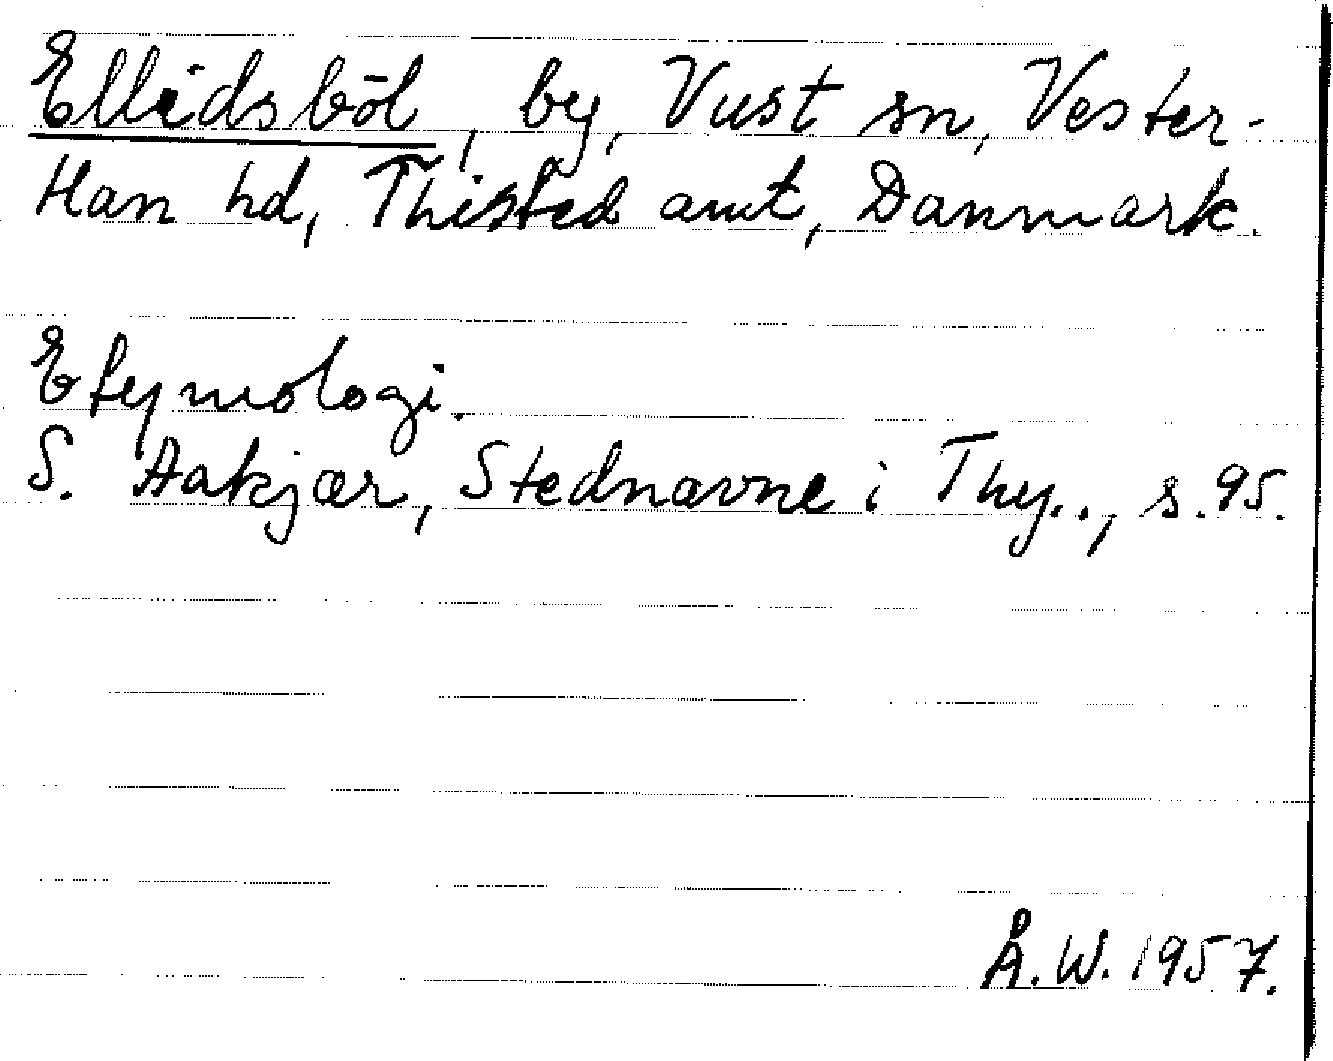 Ellidsböl, by, Vust sn, Vester-
Han hd, Thisted amt, Danmark.
Etymologi.
S. Aakjær, Stednavne i Thy.., s. 95.
Å.W. 1957.